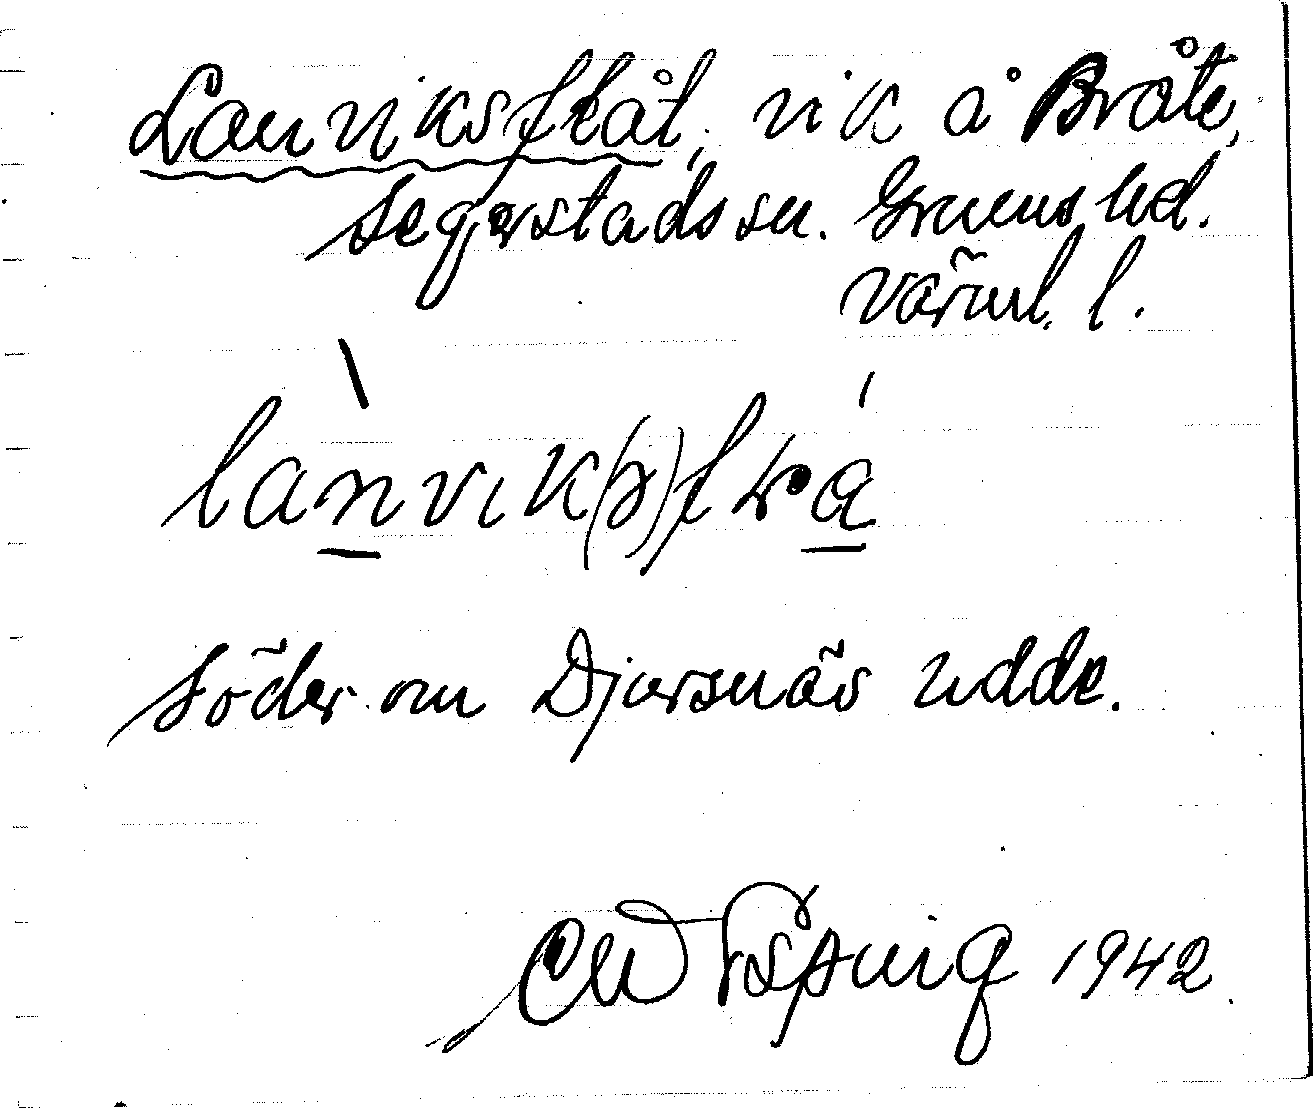 Lanviksflåt, vik å Bråte,
Segerstads sn. Grums hd.
Värml. l.
lanvik(s)flå
Söder om Djursnäs udde.
1942